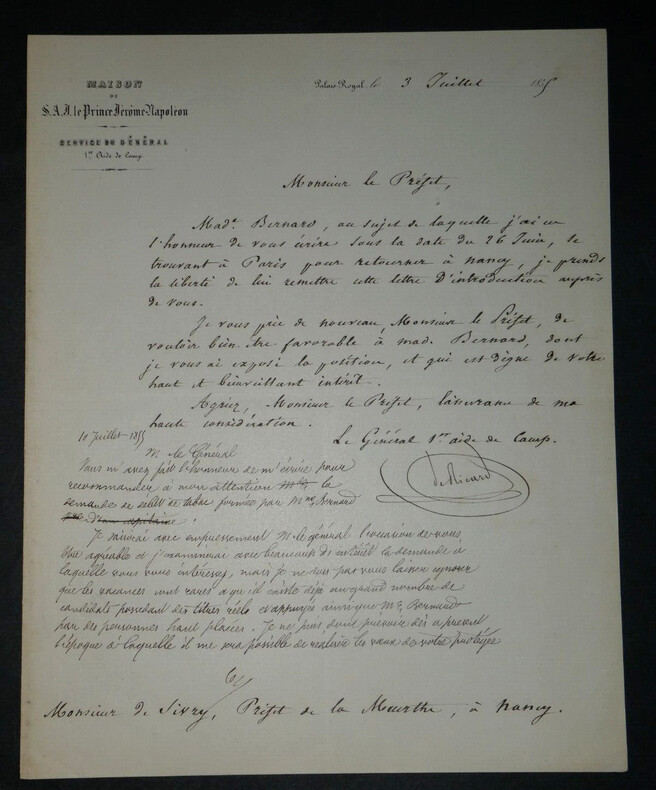 MAISON
DE
S.A.I. le Prince Jérôme-Napoléon
SERVICE DU GÉNÉRAL
1er Aide de Camp.
Palais Royal, le 3 Juillet 1855
Monsieur le Préfet,
Made. Bernard, au sujet de laquelle j'ai eu
l'honneur de vous écrire sous la date du 26 Juin, se
trouvant à Paris pour retourner à nancy, je prends
la liberté de lui remettre cette lettre d'introduction auprès
de vous.
Je vous prie de nouveau, Monsieur le Préfet, de
vouloir bien être favorable à mad. Bernard, dont
je vous ai exposé la position, et qui est digne de votre
haut et bienveillant intérêt.
Agréez, Monsieur le Préfet, l'assurance de ma
haute considération.
Le Général 1er aide de Camp.
de Ricard
10 Juillet 1855
M. le Général
Vous m'avez fait l'honneur de m'écrire pour
recommander à mon attention la
demande de débit de tabac formée par Mme Bernard
d'un capitaine
Je saisirai avec empressement M. le général l'occasion de vous
être agréable et j'examinerai avec beaucoup d'intérêt la demande à
laquelle vous vous intéressez, mais je ne dois pas vous laisser ignorer
que les vacances sont rares et qu'il existe déjà un grand nombre de
candidats possédant des titres réels et appuyés ainsi que Me Bernard
par des personnes haut placées. Je ne puis donc prévoir dès à présent
l'époque à laquelle il me sera possible de réaliser les vœux de votre protégée
Monsieur de Sivry, Préfet de la Meurthe, à nancy.